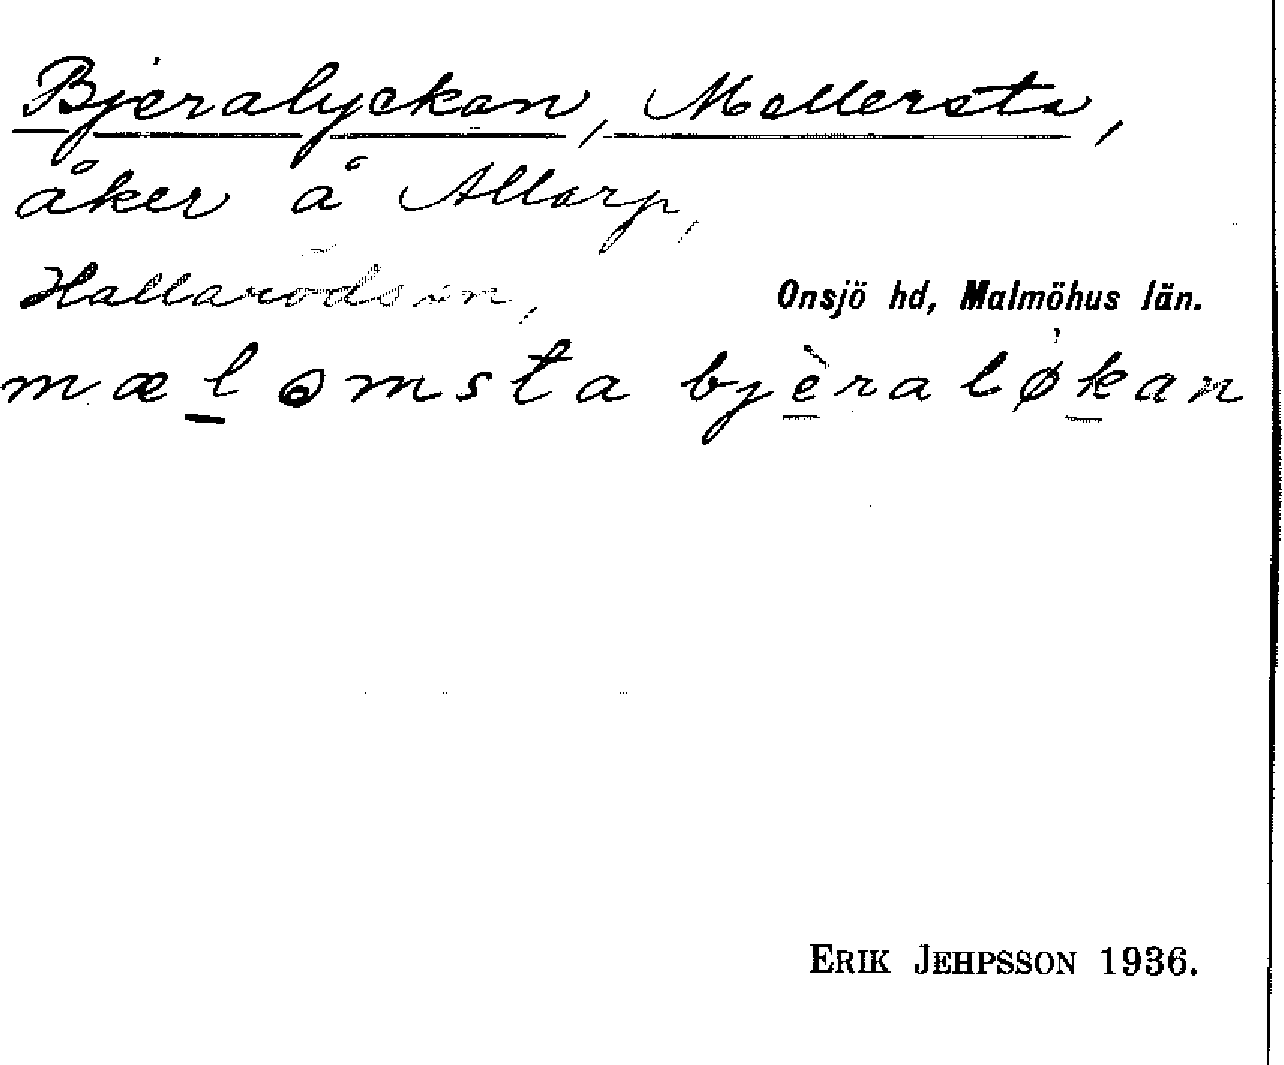 Bjeralyckan, Mellersta,
åker å Allarp,
Hallaröds sn, Onsjö hd, Malmöhus län.
mælomsta bjèraløkan
ERIK JEHPSSON 1936.